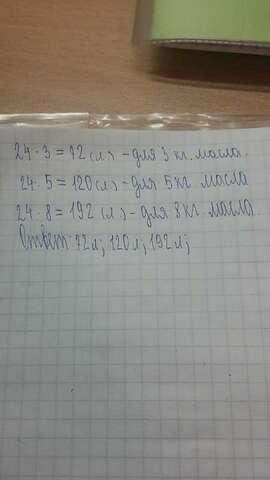 24 · 3 = 72 (л) - для 3 кг. масла.
24 · 5 = 120 (л) - для 5 кг. масла
24 · 8 = 192 (л) - для 8 кг. масла
Ответ: 72 л; 120 л; 192 л;